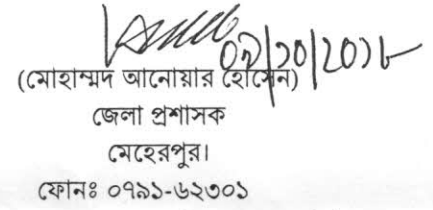 (মোহাম্মদ আনোয়ার হোসেন)
জেলা প্রশাসক
মেহেরপুর।
ফোনঃ ০৭৯১-৬২৩০১